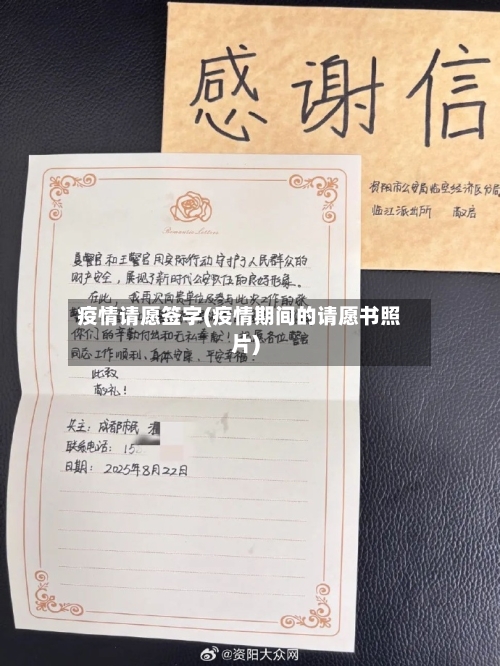 感谢信
资阳市公安局临空经济区分局
临江派出所 敬启
Romance Letters
夏警官和王警官用实际行动守护了人民群众的
财产安全，展现了新时代公安队伍的良好形象。
在此，我再次向贵单位及参与此次工作的
疫情请愿签字(疫情期间的请愿书照
片)
你们的辛勤付出和无私奉献！
各位警官
同志工作顺利、身体安康、平安幸福！
此致
敬礼！
买主：成都市民
联系电话：15
日期：2025年8月22日
@资阳大众网